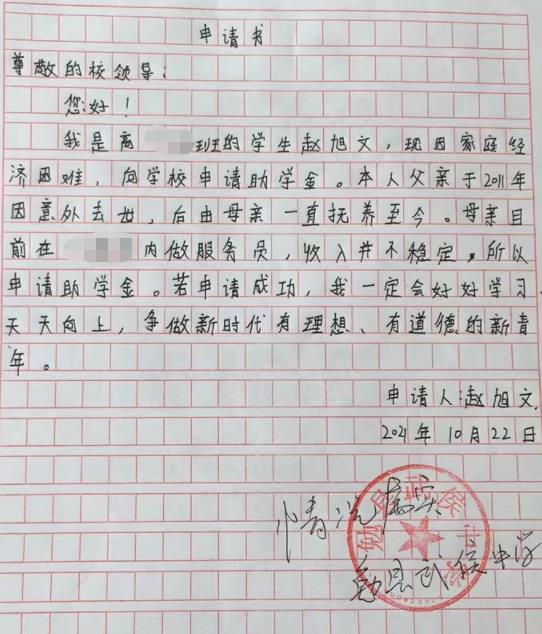 申请书
尊敬的校领导:
您好!
我是高 班的学生赵旭文,现因家庭经
济困难,向学校申请助学金。本人父亲于2011年
因意外去世,后由母亲一直抚养至今。母亲目
前在 内做服务员,收入并不稳定,所以
申请助学金。若申请成功,我一定会好好学习、
天天向上,争做新时代有理想、有道德的新青
年。
申请人:赵旭文
2021年10月22日
情况属实
勉县武侯中学
勉县武侯中学